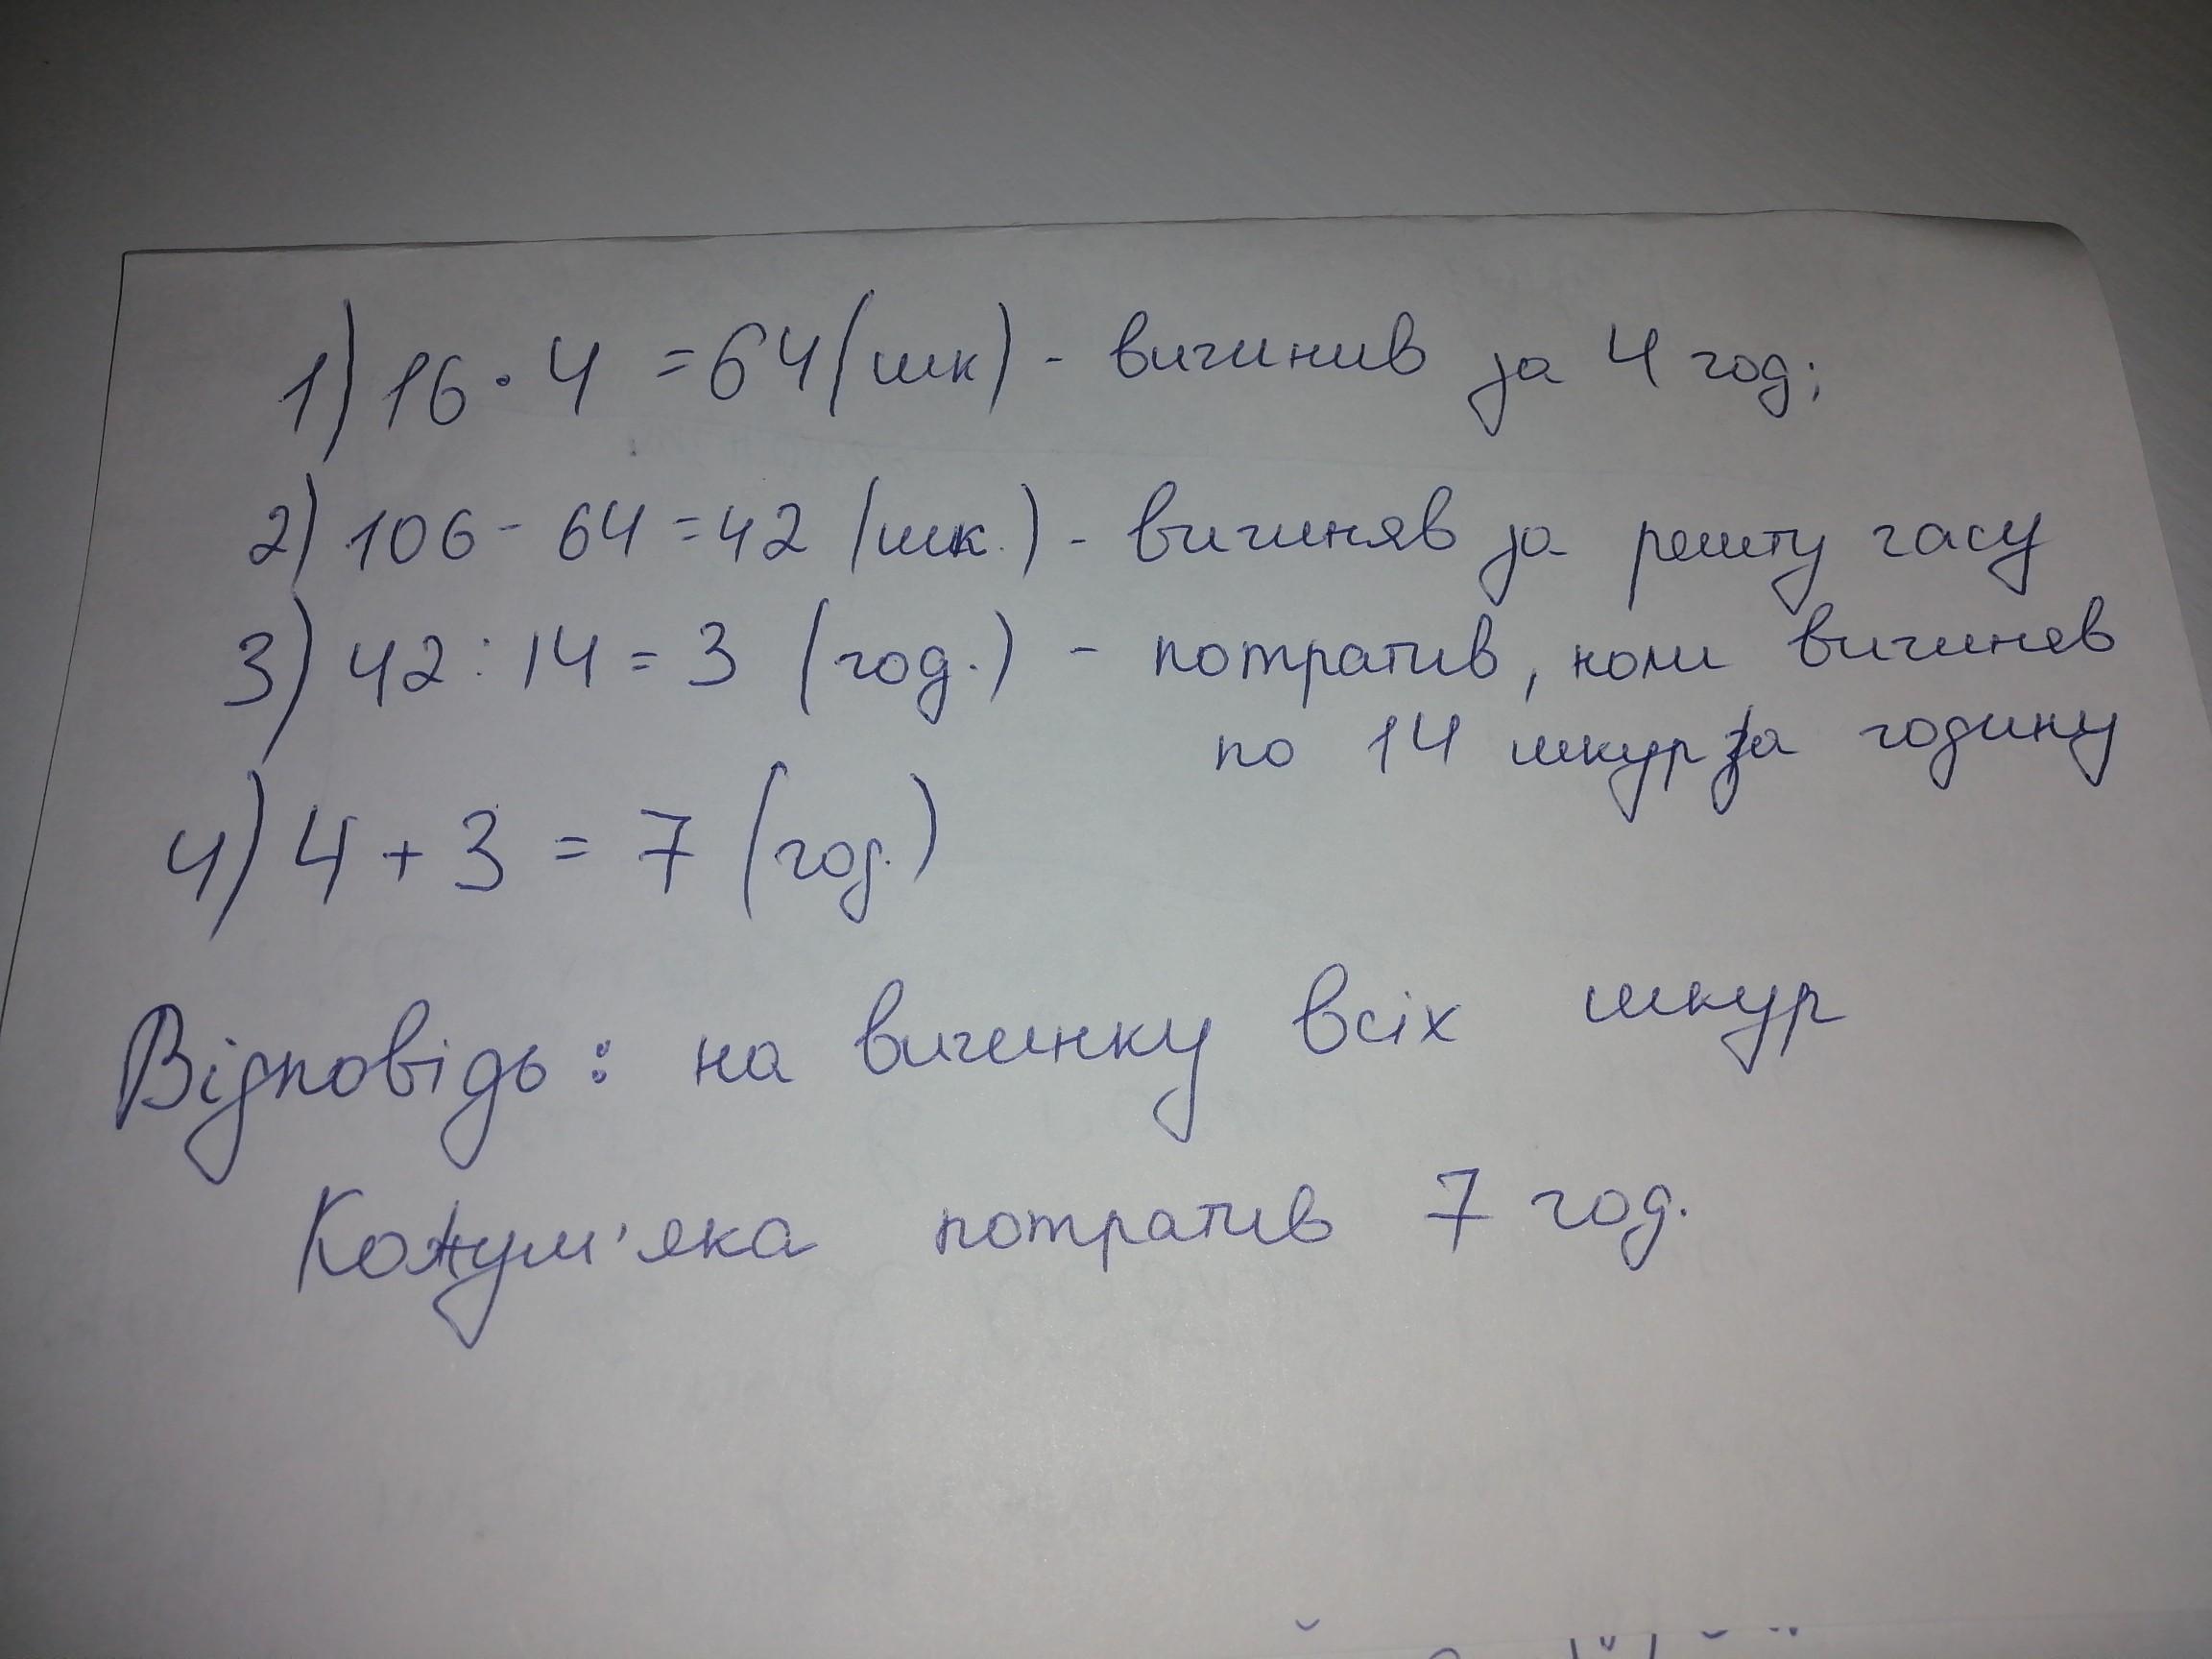 1) 16 · 4 = 64 (шк) - вичинив за 4 год;
2) 106 - 64 = 42 (шк.) - вичиняв за решту часу
3) 42 : 14 = 3 (год.) - потратив, коли вичиняв
по 14 шкур за годину
4) 4 + 3 = 7 (год.)
Відповідь: на вичинку всіх шкур
Кожум'яка потратив 7 год.